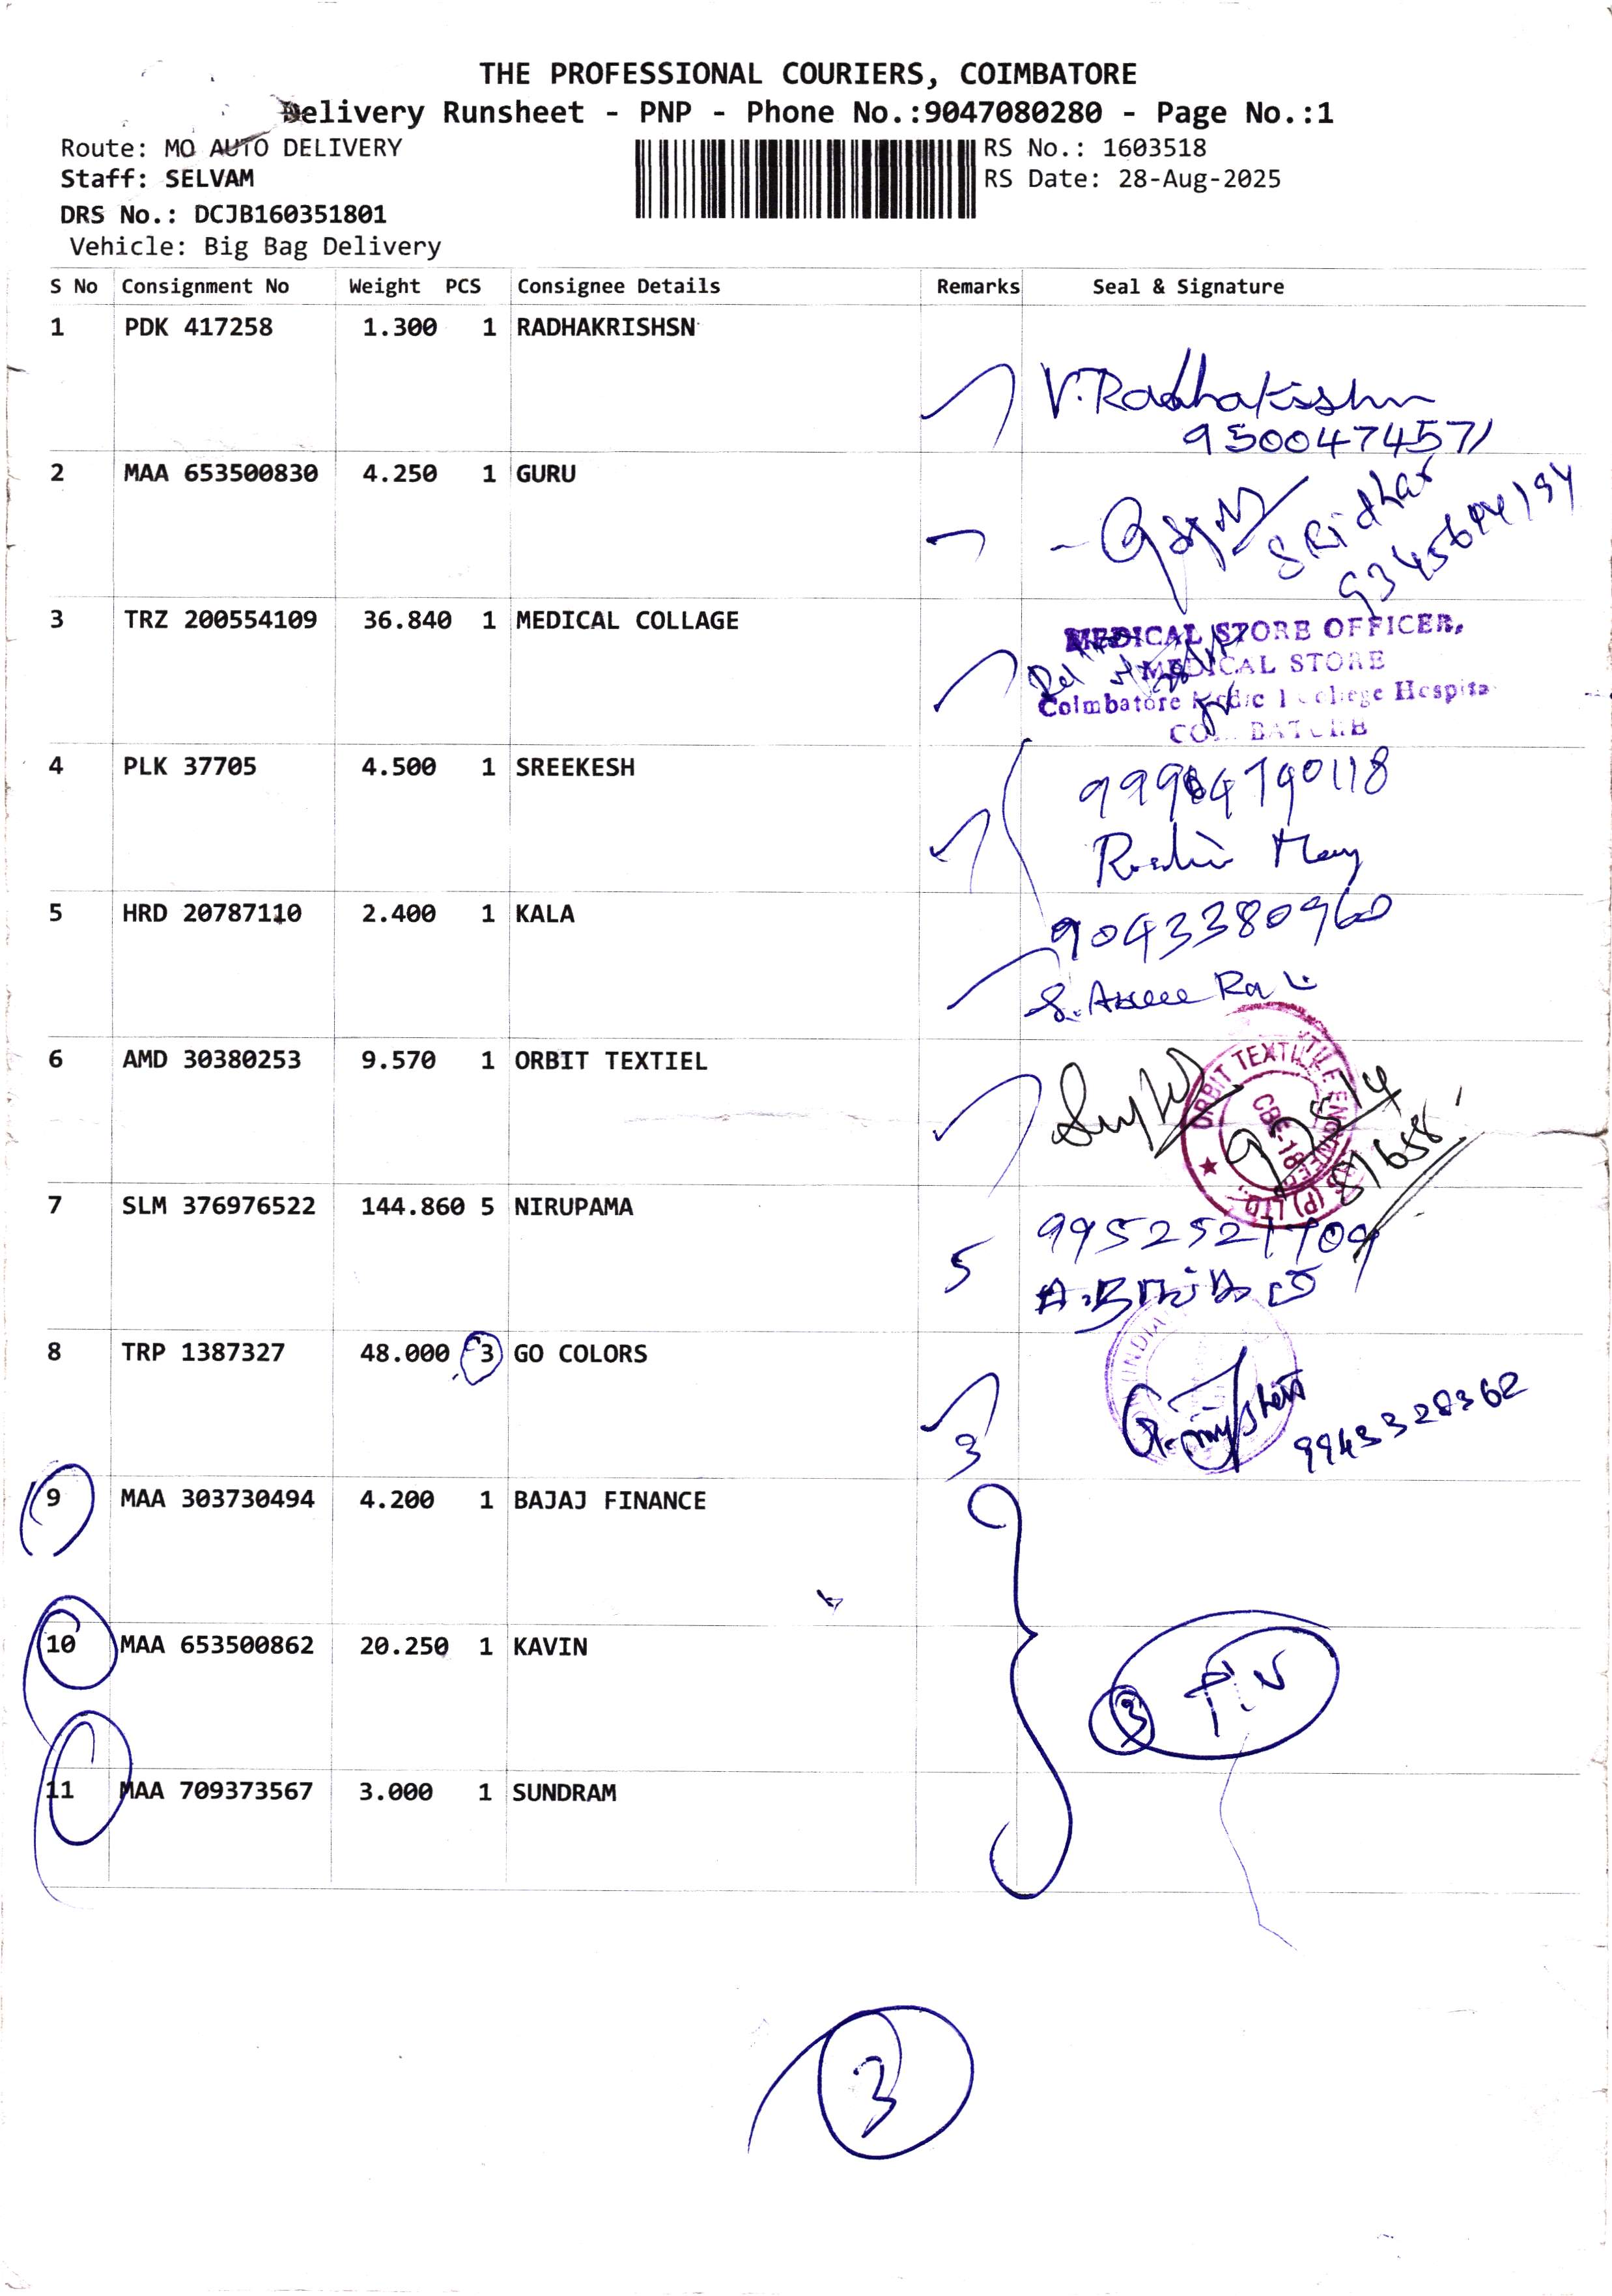 THE PROFESSIONAL COURIERS, COIMBATORE
Delivery Runsheet - PNP - Phone No.:9047080280 - Page No.:1
Route: MO AUTO DELIVERY
RS No.: 1603518
Staff: SELVAM
RS Date: 28-Aug-2025
DRS No.: DCJB160351801
Vehicle: Big Bag Delivery
S No Consignment No Weight PCS Consignee Details Remarks Seal & Signature
1 PDK 417258 1.300 1 RADHAKRISHSN
V.Radhakrishn
9500474571
2 MAA 653500830 4.250 1 GURU
SRidhar
9345644194
3 TRZ 200554109 36.840 1 MEDICAL COLLAGE
MEDICAL STORE OFFICER,
MEDICAL STORE
Coimbatore Medical College Hospital
COIMBATORE
4 PLK 37705 4.500 1 SREEKESH
5 HRD 20787110 2.400 1 KALA
9043380960
6 AMD 30380253 9.570 1 ORBIT TEXTIEL
ORBIT TEXTILE ENGINEERS (P) LTD
CBE-18
7 SLM 376976522 144.860 5 NIRUPAMA
5
9952521709
8 TRP 1387327 48.000 3 GO COLORS
3
9943328362
9 MAA 303730494 4.200 1 BAJAJ FINANCE
10 MAA 653500862 20.250 1 KAVIN
3
11 MAA 709373567 3.000 1 SUNDRAM
3